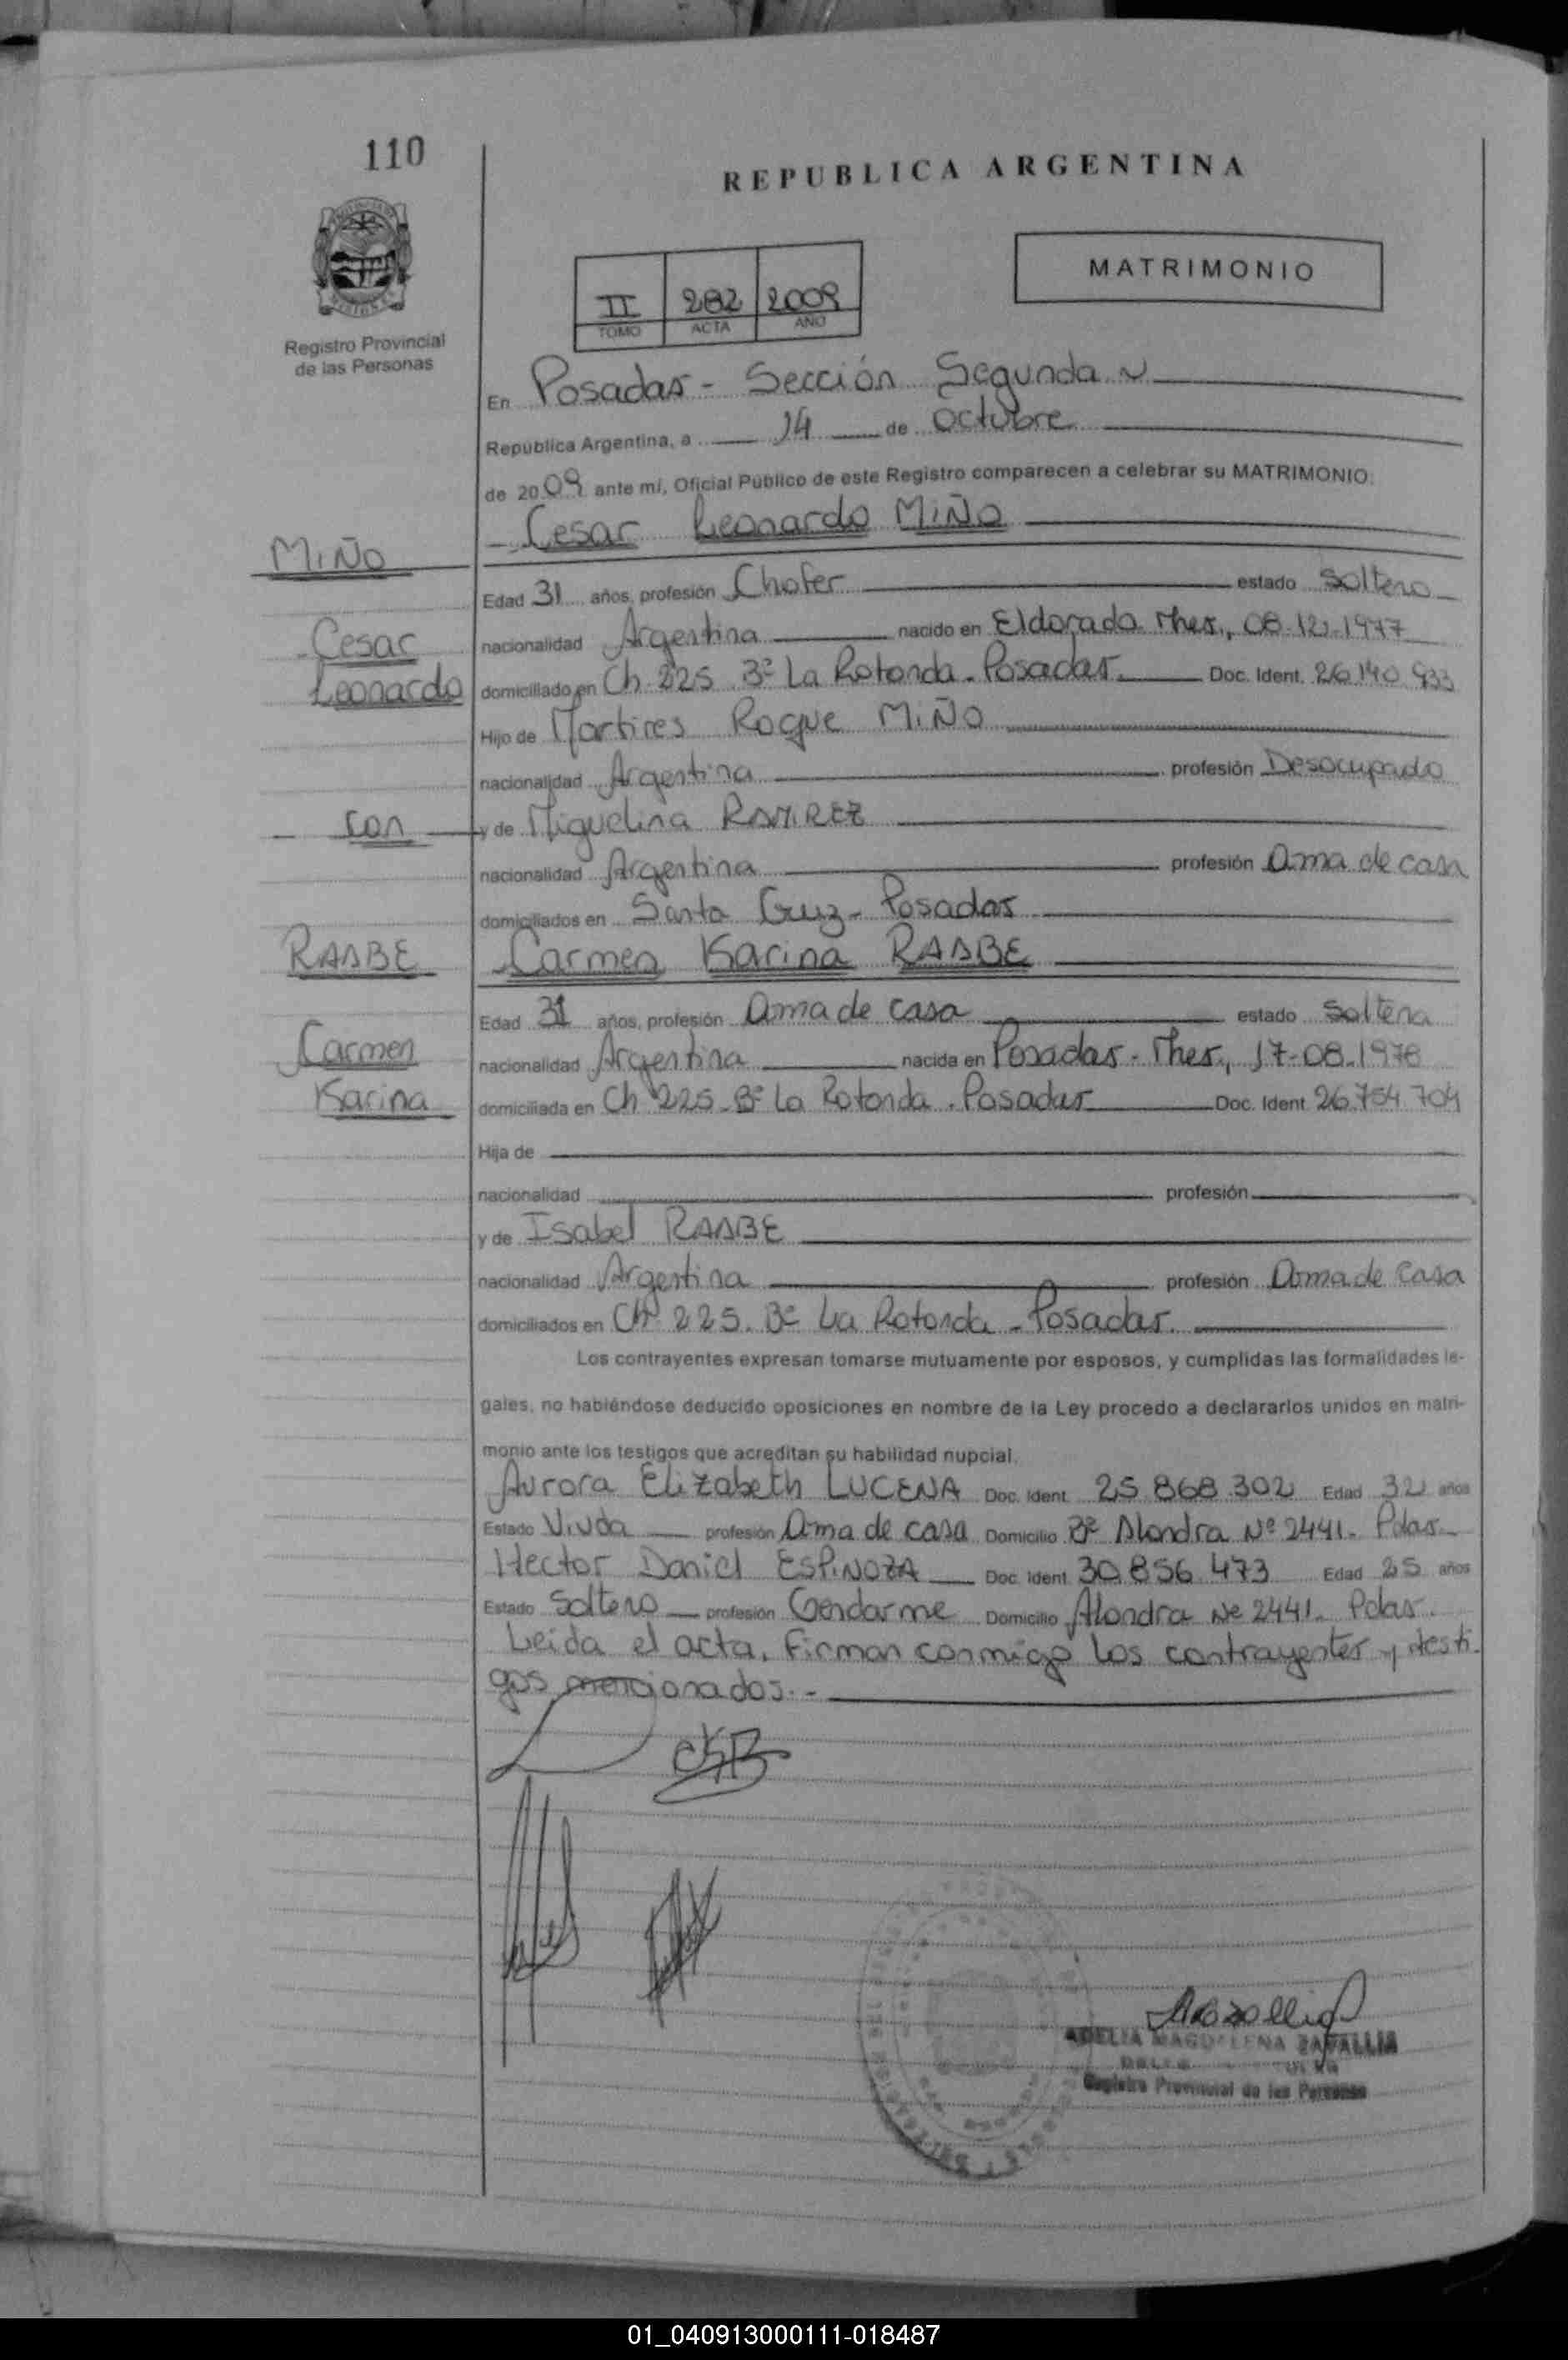 110
REPUBLICA ARGENTINA
MATRIMONIO
II 282 2009
TOMO ACTA AÑO
Registro Provincial
de las Personas
En Posadas - Sección Segunda
República Argentina, a 14 de Octubre
de 2009 ante mí, Oficial Público de este Registro comparecen a celebrar su MATRIMONIO:
Cesar Leonardo MIÑO
MIÑO
Edad 31 años, profesión Chofer estado Soltero
Cesar
nacionalidad Argentina nacido en Eldorado Mnes., 08-12-1977
Leonardo
domiciliado en Ch. 225 Bº La Rotonda - Posadas. Doc. Ident. 26.140.933
Hijo de Martires Roque MIÑO
nacionalidad Argentina profesión Desocupado
con
y de Miguelina RAMIREZ
nacionalidad Argentina profesión Ama de casa
domiciliados en Santa Cruz - Posadas
RAABE
Carmen Karina RAABE
Edad 31 años, profesión Ama de casa estado Soltera
Carmen
nacionalidad Argentina nacida en Posadas - Mnes., 17-08-1978
Karina
domiciliada en Ch 225 - Bº La Rotonda - Posadas Doc. Ident. 26.754.704
Hija de
nacionalidad profesión
y de Isabel RAABE
nacionalidad Argentina profesión Ama de casa
domiciliados en Ch 225. Bº La Rotonda - Posadas.
Los contrayentes expresan tomarse mutuamente por esposos, y cumplidas las formalidades le-
gales, no habiéndose deducido oposiciones en nombre de la Ley procedo a declararlos unidos en matri-
monio ante los testigos que acreditan su habilidad nupcial.
Aurora Elizabeth LUCENA Doc. Ident. 25.868.302 Edad 32 años
Estado Viuda profesión Ama de casa Domicilio Bº Alondra Nº 2441 - Pdas.
Hector Daniel ESPINOZA Doc. Ident. 30.856.473 Edad 25 años
Estado Soltero profesión Gendarme Domicilio Alondra Nº 2441. Pdas.
Leida el acta, firman conmigo los contrayentes y testi-
gos mencionados.-
ADELIA MAGDALENA ZAVALLIA
Registro Provincial de las Personas
01_040913000111-018487